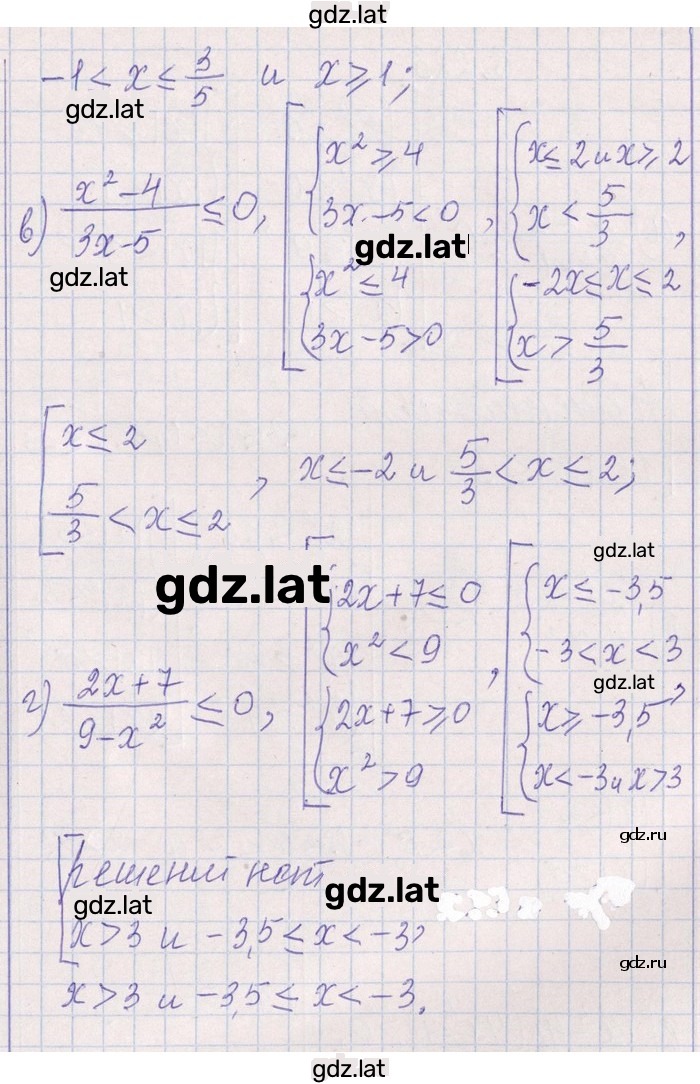 gdz.lat
-1 < x ≤ 3/5 и x ≥ 1;
gdz.lat
в) (x² - 4)/(3x - 5) ≤ 0, [ { x² ≥ 4 ; 3x - 5 < 0 ; { x² ≤ 4 ; 3x - 5 > 0 , [ { x ≤ 2 и x ≥ 2 ; x < 5/3 ; { -2x ≤ x ≤ 2 ; x > 5/3 ,
gdz.lat
gdz.lat
[ x ≤ 2 ; 5/3 < x ≤ 2 , x ≤ -2 и 5/3 < x ≤ 2;
gdz.lat
gdz.lat
г) (2x + 7)/(9 - x²) ≤ 0, [ { 2x + 7 ≤ 0 ; x² < 9 ; { 2x + 7 ≥ 0 ; x² > 9 , [ { x ≤ -3,5 ; -3 < x < 3 ; { x ≥ -3,5 ; x < -3 и x > 3 ,
gdz.lat
gdz.ru
[ решений нет
gdz.lat
gdz.lat
x > 3 и -3,5 ≤ x < -3,
gdz.ru
x > 3 и -3,5 ≤ x < -3.
gdz.lat